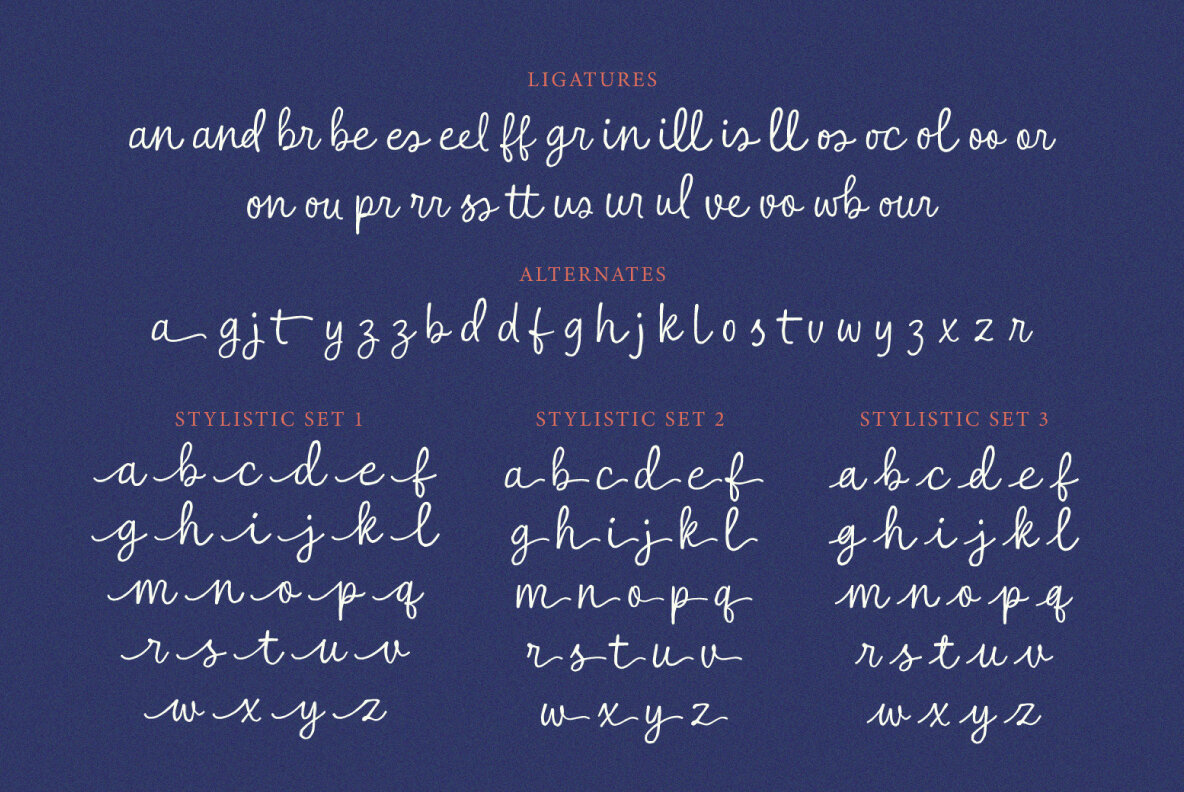 LIGATURES
an and br be es eel ff gr in ill is ll os oc ol oo or
on ou pr rr ss tt us ur ul ve vo wb our
ALTERNATES
a g j t y z z b d d f g h j k l o s t v w y z x z r
STYLISTIC SET 1
a b c d e f
g h i j k l
m n o p q
r s t u v
w x y z
STYLISTIC SET 2
a b c d e f
g h i j k l
m n o p q
r s t u v
w x y z
STYLISTIC SET 3
a b c d e f
g h i j k l
m n o p q
r s t u v
w x y z